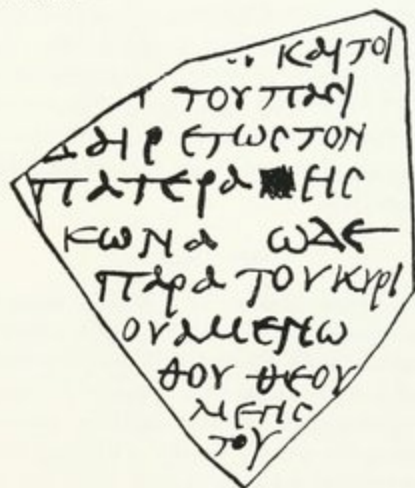 καιτοι
τουπασι
δαιρετωςτον
πατερα εις
κωνα ωδε
παρα τουκυρι
ουαμενω
θου θεου
μεγις
του